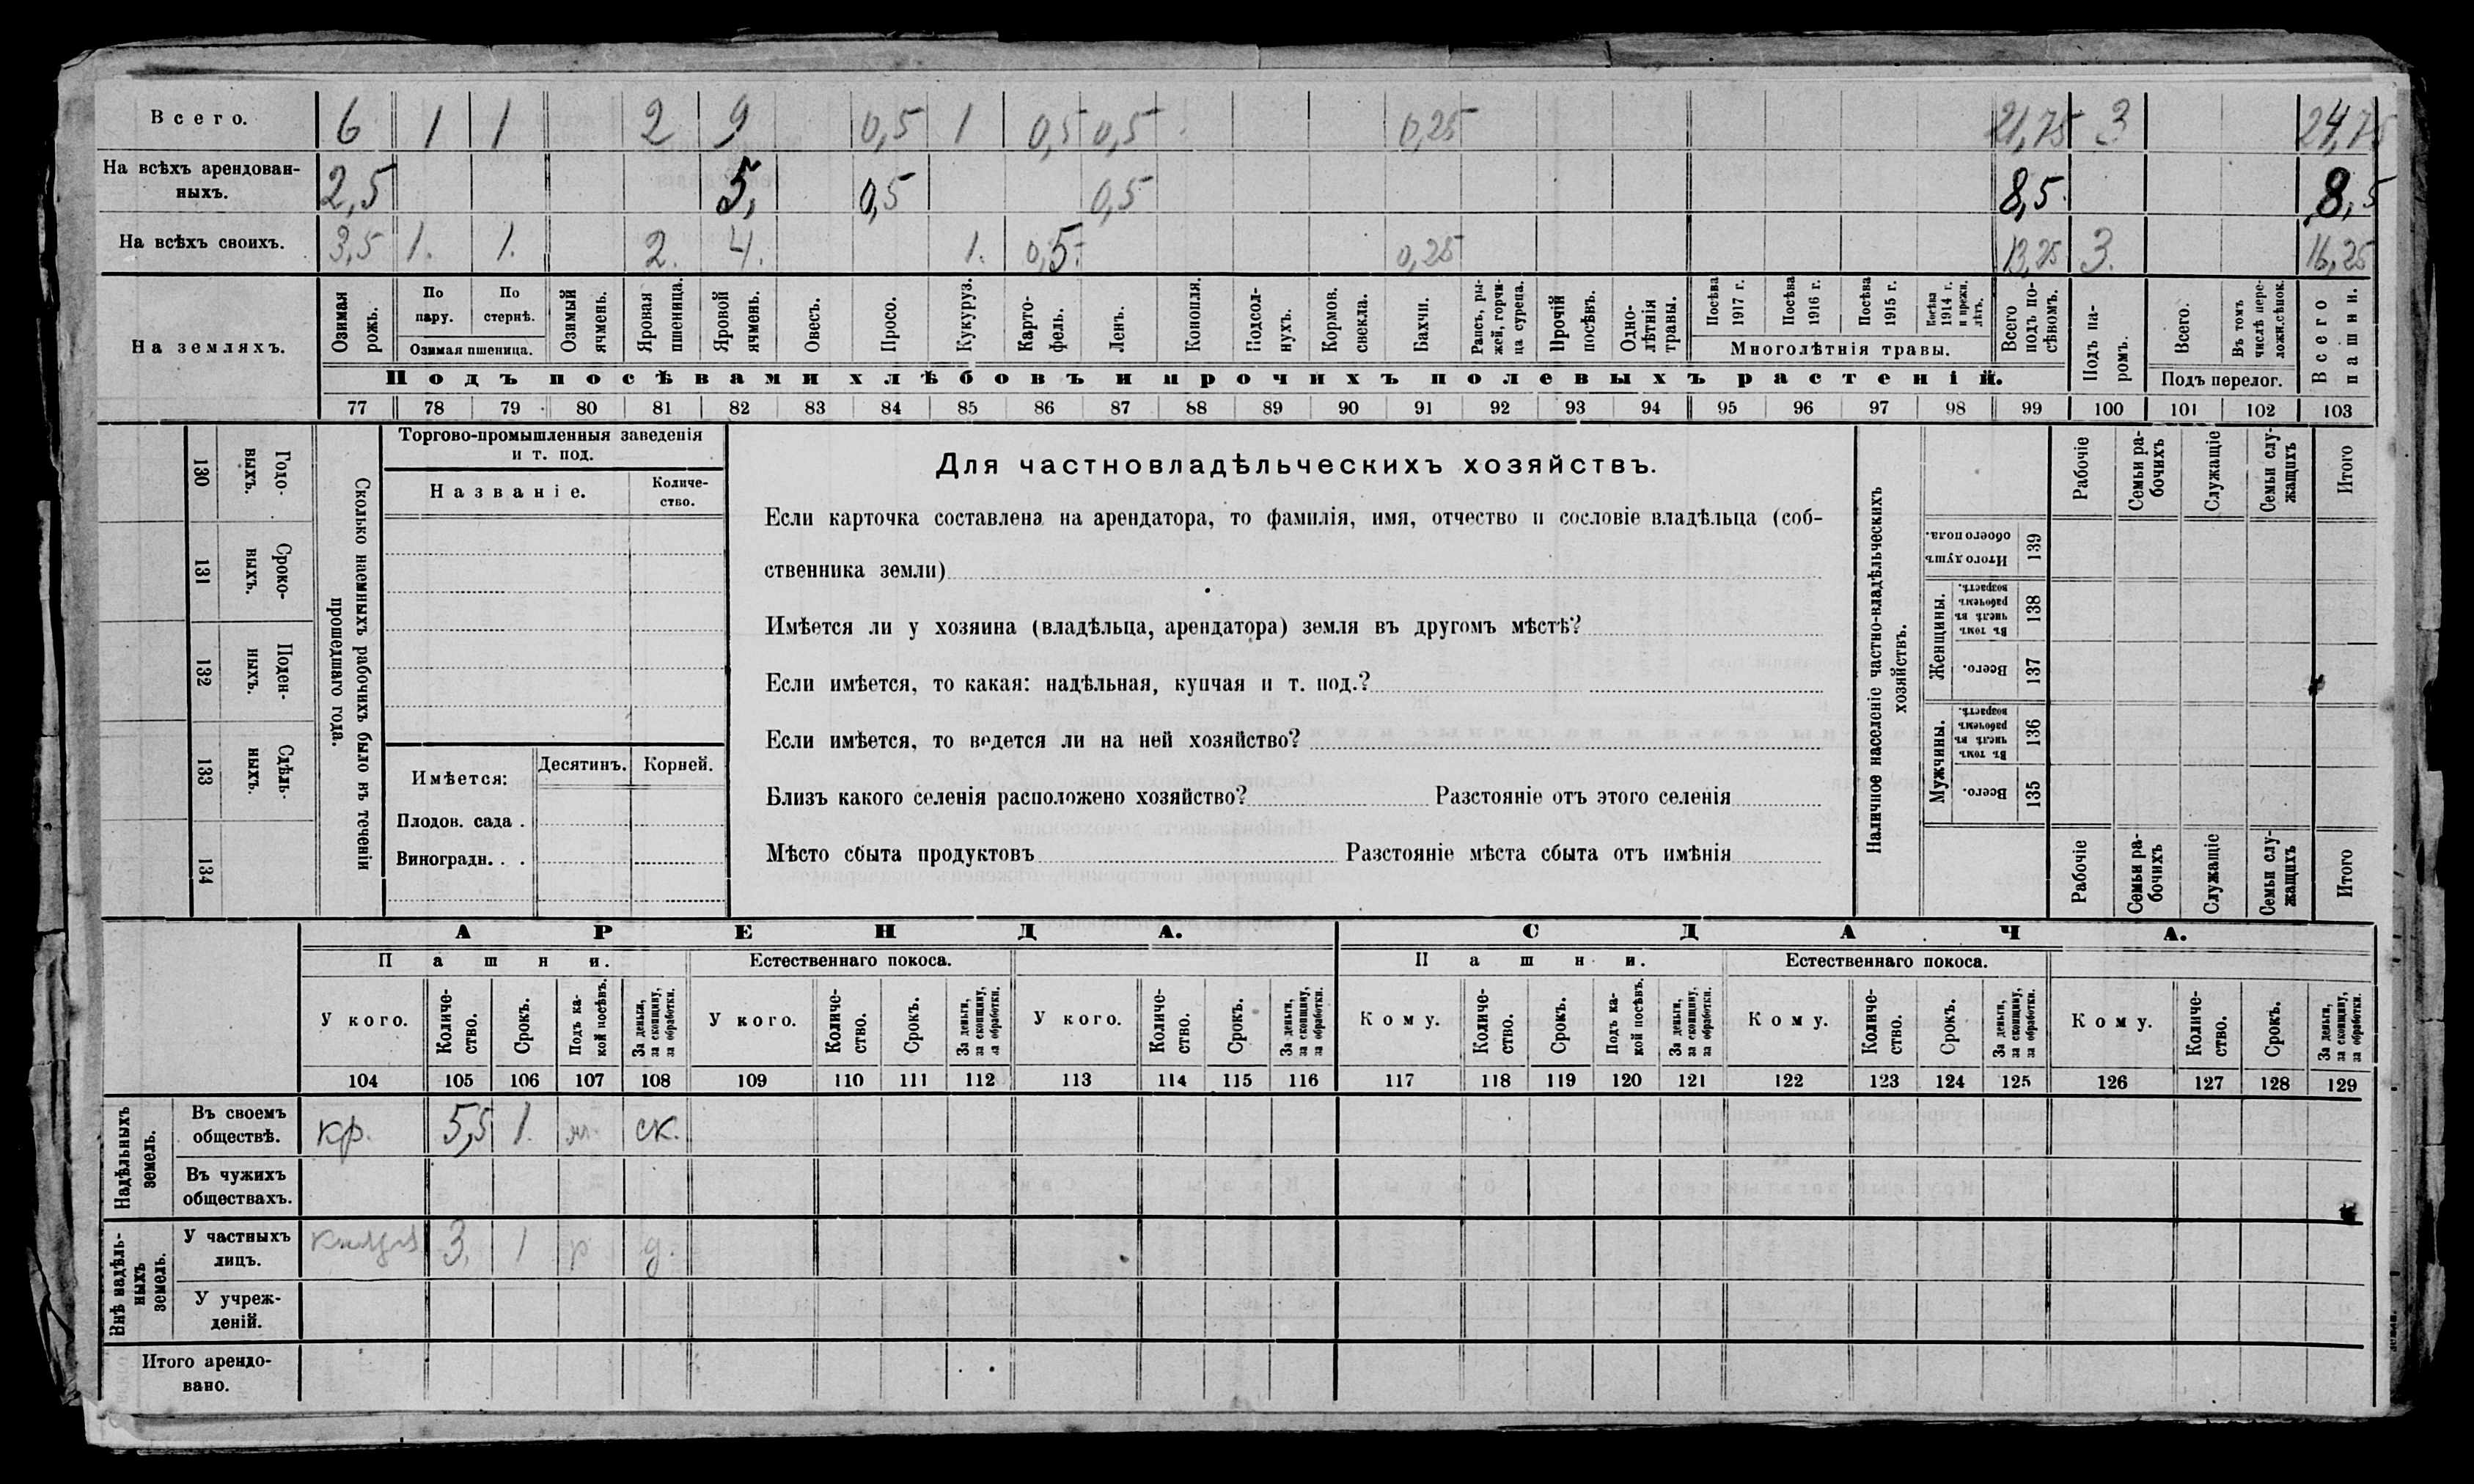 Всего. 6 1 1 2 9 0,5 1 0,5 0,5 0,25 21,75 3 24,75
На всѣхъ арендован-
ныхъ. 2,5 5, 0,5 0,5 8,5. 8,5
На всѣхъ своихъ. 3,5 1. 1. 2. 4. 1. 0,5. 0,25 13,25 3. 16,25
На земляхъ.
Озимая рожь.
По пару.
По стернѣ.
Озимая пшеница.
Озимый ячмень.
Яровая пшеница.
Яровой ячмень.
Овесъ.
Просо.
Кукуруз.
Карто-
фель.
Ленъ.
Конопля.
Подсол-
нухъ.
Кормов. свекла.
Бахчи.
Рапсъ, ры-
жей, горчи-
ца суреца.
Прочій посѣвъ.
Одно-
лѣтнія травы.
Посѣва 1917 г.
Посѣва 1916 г.
Посѣва 1915 г.
Посѣва 1914 г. и прежн. лѣтъ.
Многолѣтнія травы.
Всего подъ по-
сѣвомъ.
Подъ па-
ромъ.
Всего.
Въ томъ числѣ пере-
ложн. сѣнок.
Подъ перелог.
Всего пашни.
Подъ посѣвами хлѣбовъ и прочихъ полевыхъ растеній.
77 78 79 80 81 82 83 84 85 86 87 88 89 90 91 92 93 94 95 96 97 98 99 100 101 102 103
130 Годо-
выхъ.
131 Сроко-
выхъ.
132 Поден-
ныхъ.
133 Сдѣль-
ныхъ.
134
Сколько наемныхъ рабочихъ было въ теченіи
прошедшаго года.
Торгово-промышленныя заведенія
и т. под.
Названіе.
Количе-
ство.
Имѣется:
Десятинъ. Корней.
Плодов. сада .
Виноградн. . .
Для частновладѣльческихъ хозяйствъ.
Если карточка составлена на арендатора, то фамилія, имя, отчество и сословіе владѣльца (соб-
ственника земли)
Имѣется ли у хозяина (владѣльца, арендатора) земля въ другомъ мѣстѣ?
Если имѣется, то какая: надѣльная, купчая и т. под.?
Если имѣется, то ведется ли на ней хозяйство?
Близъ какого селенія расположено хозяйство? Разстояніе отъ этого селенія
Мѣсто сбыта продуктовъ Разстояніе мѣста сбыта отъ имѣнія
Наличное населеніе частно-владѣльческихъ
хозяйствъ.
Рабочіе
Семьи ра-
бочихъ
Служащіе
Семьи слу-
жащихъ
Итого
Итого душъ обоего пола. 139
Женщины.
Въ томъ числѣ въ рабочемъ возрастѣ. 138
Всего. 137
Мужчины.
Въ томъ числѣ въ рабочемъ возрастѣ. 136
Всего. 135
Рабочіе
Семьи ра-
бочихъ
Служащіе
Семьи слу-
жащихъ
Итого
АРЕНДА. СДАЧА.
Пашни. Естественнаго покоса. Пашни. Естественнаго покоса.
У кого.
Количе-
ство.
Срокъ.
Подъ ка-
кой посѣвъ.
За деньги,
за скопщину,
за обработки.
У кого.
Количе-
ство.
Срокъ.
За деньги,
за скопщину,
за обработки.
У кого.
Количе-
ство.
Срокъ.
За деньги,
за скопщину,
за обработки.
Кому.
Количе-
ство.
Срокъ.
Подъ ка-
кой посѣвъ.
За деньги,
за скопщину,
за обработки.
Кому.
Количе-
ство.
Срокъ.
За деньги,
за скопщину,
за обработки.
Кому.
Количе-
ство.
Срокъ.
За деньги,
за скопщину,
за обработки.
104 105 106 107 108 109 110 111 112 113 114 115 116 117 118 119 120 121 122 123 124 125 126 127 128 129
Надѣльныхъ
земель.
Въ своемъ
обществѣ. кр. 5,5 1. ск.
Въ чужихъ
обществахъ.
Внѣ надѣль-
ныхъ
земель.
У частныхъ
лицъ. 3. 1 р. д.
У учреж-
деній.
Итого арендо-
вано.